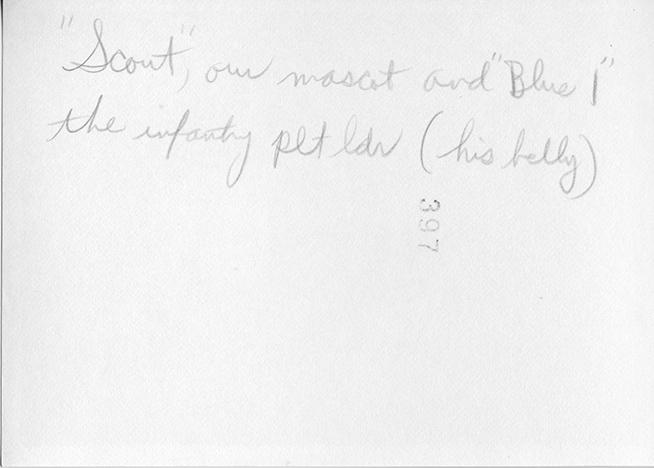 "Scout", our mascot and "Blue 1"
the infantry plt ldr (his belly)
397